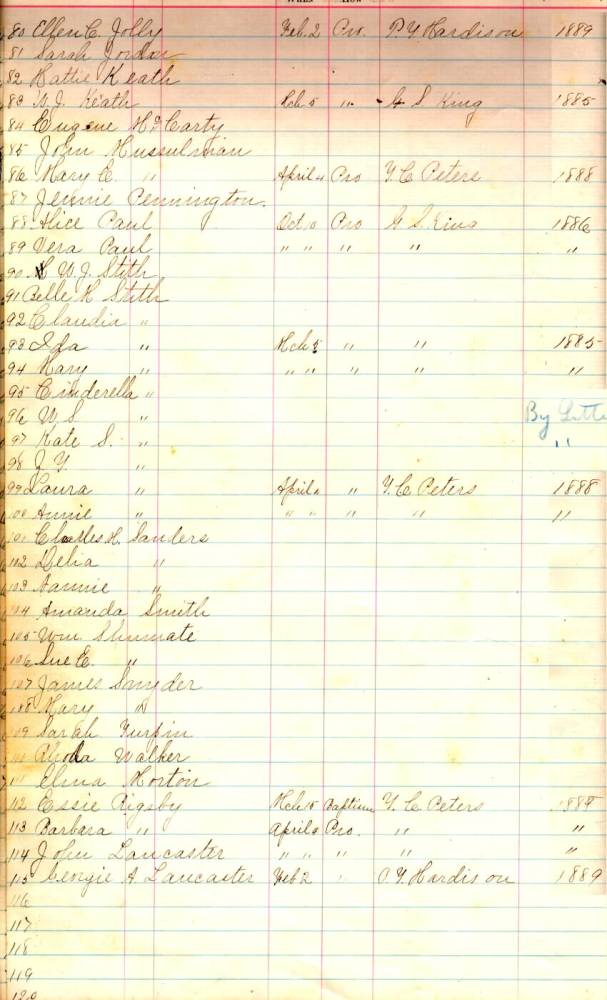 WHEN HOW
80 Ellen C. Jolly Feb. 2 Pro. P. Y. Hardison 1889
81 Sarah Jordan
82 Hattie Keath
83 W. J. Keath Mch 5 " G S King 1885
84 Eugene McCarty
85 John Mussulman
86 Mary C. " April 4 Pro Y. C. Peters 1888
87 Jennie Pennington.
88 Alice Paul Oct 10 Pro G S. King 1886
89 Vera Paul " " " " "
90 W. J. Stith
91 Belle H Stith
92 Claudia "
93 Ida " Mch 5 " " 1885
94 Mary " " " " " "
95 Cinderella "
96 W. S. " By
97 Kate S. " "
98 J. Y. "
99 Laura " April " Y. C. Peters 1888
100 Annie " " " " " "
101 Charles H. Sanders
102 Delia "
103 Nannie "
104 Amanda Smith
105 Wm Shumate
106 Sue E. "
107 James Snyder
108 Mary "
109 Sarah Turpin
110 Walker
111 Elma Horton
112 Essie Rigsby Mch 18 Baptism Y. C. Peters 1888
113 Barbara " April Pro. " "
114 John Lancaster " " " " "
115 Georgie A Lancaster Feb 2 " P. Y. Hardison 1889
116
117
118
119
120